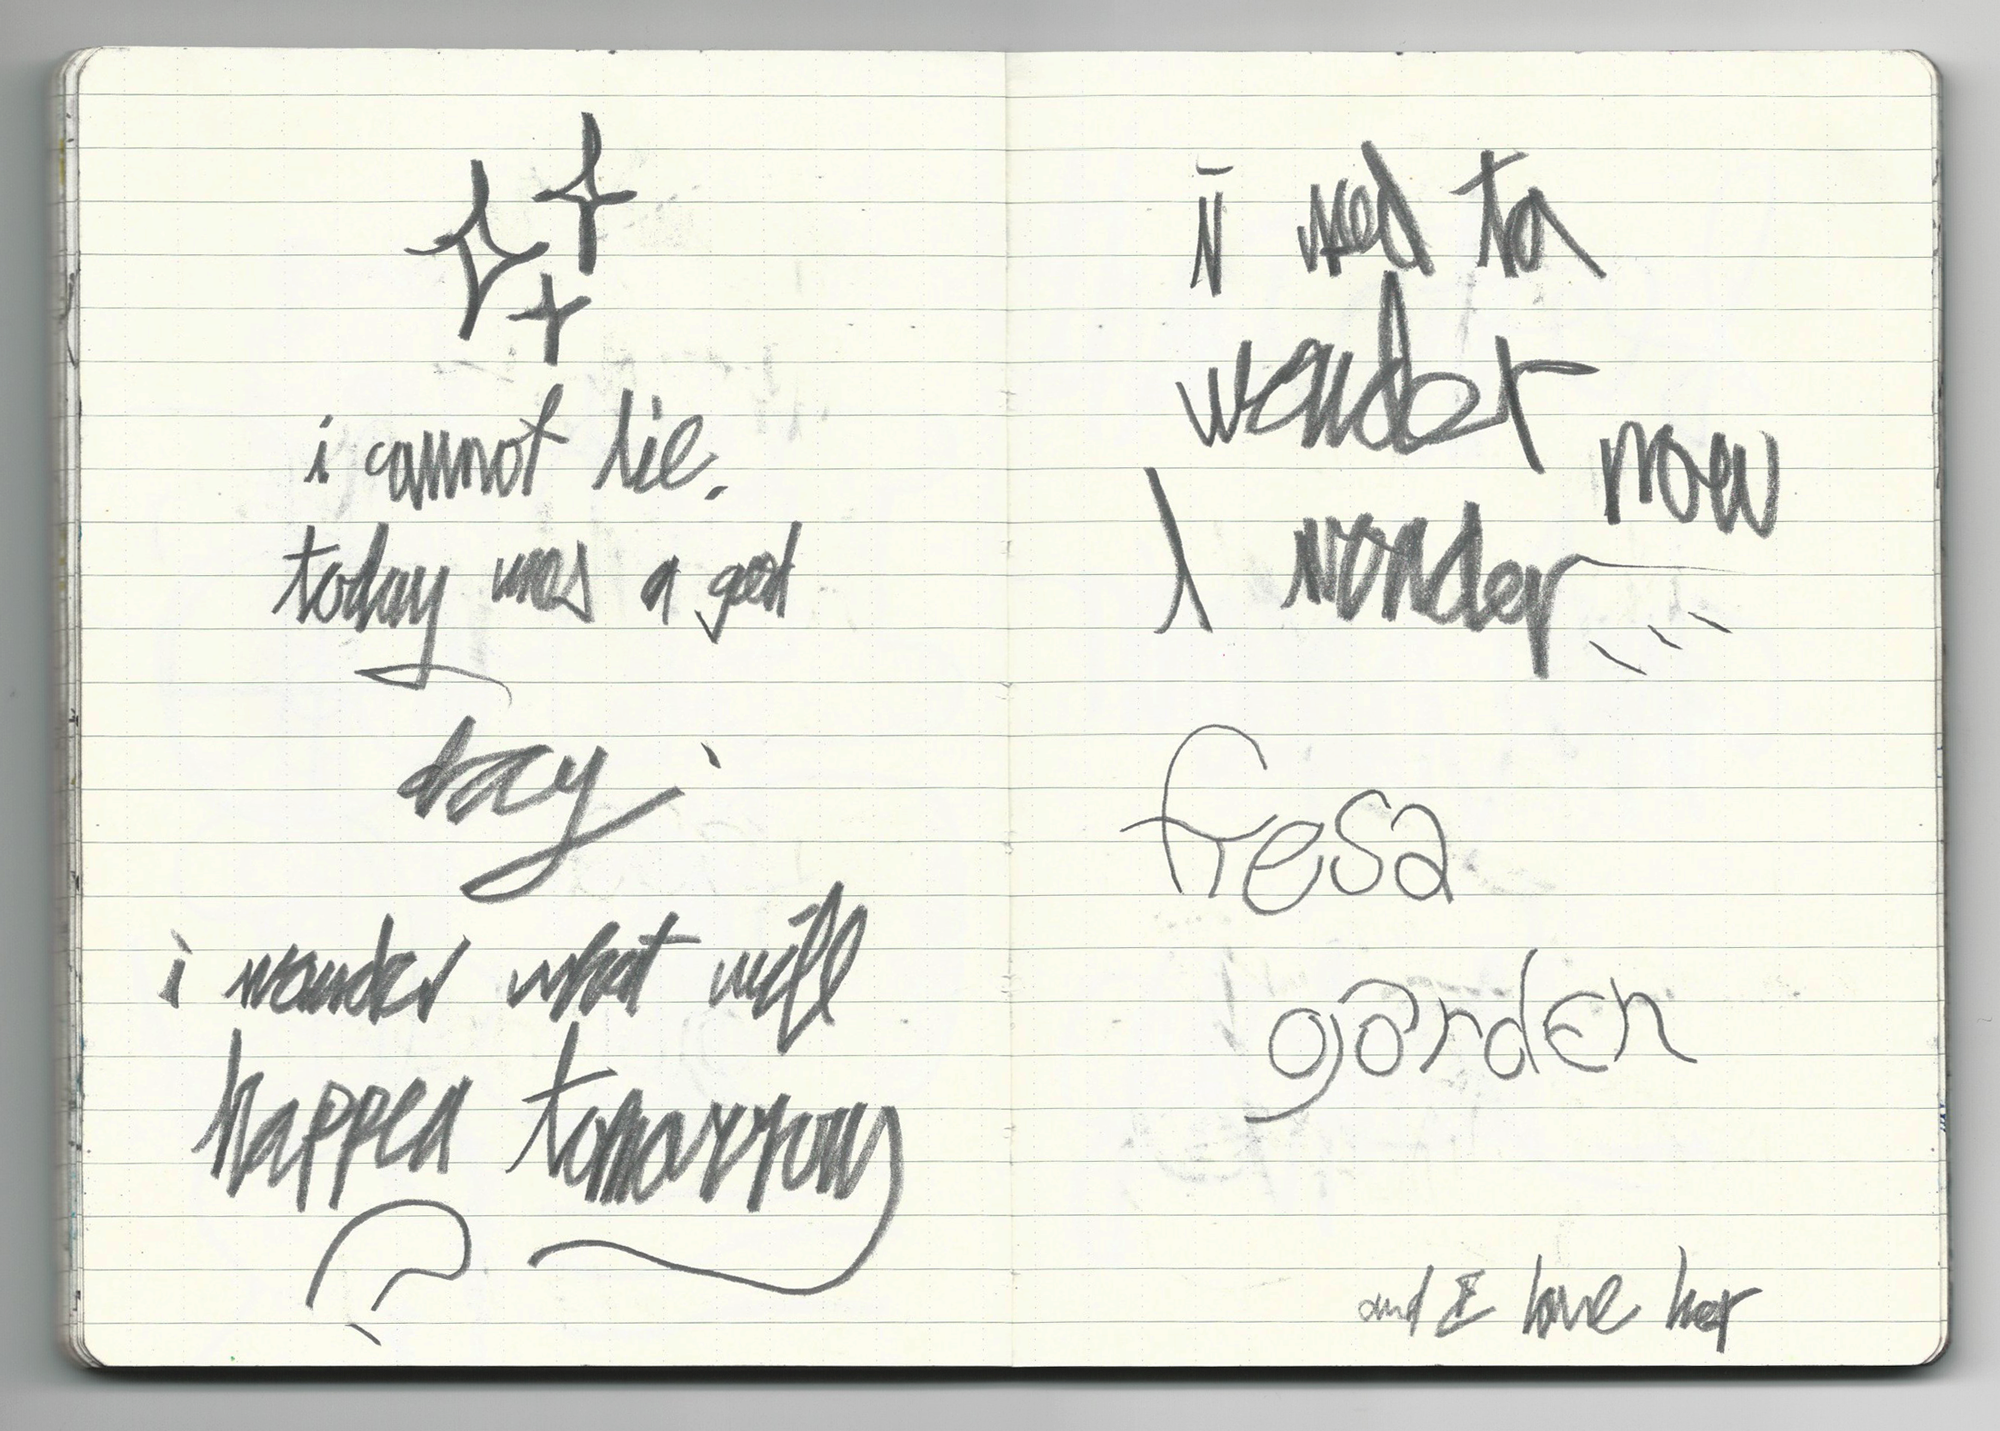 i cannot lie.
today was a good
day.
i wonder what will
happen tomorrow
?
i used to
wander
now
I wonder
fresa
garden
and I love her